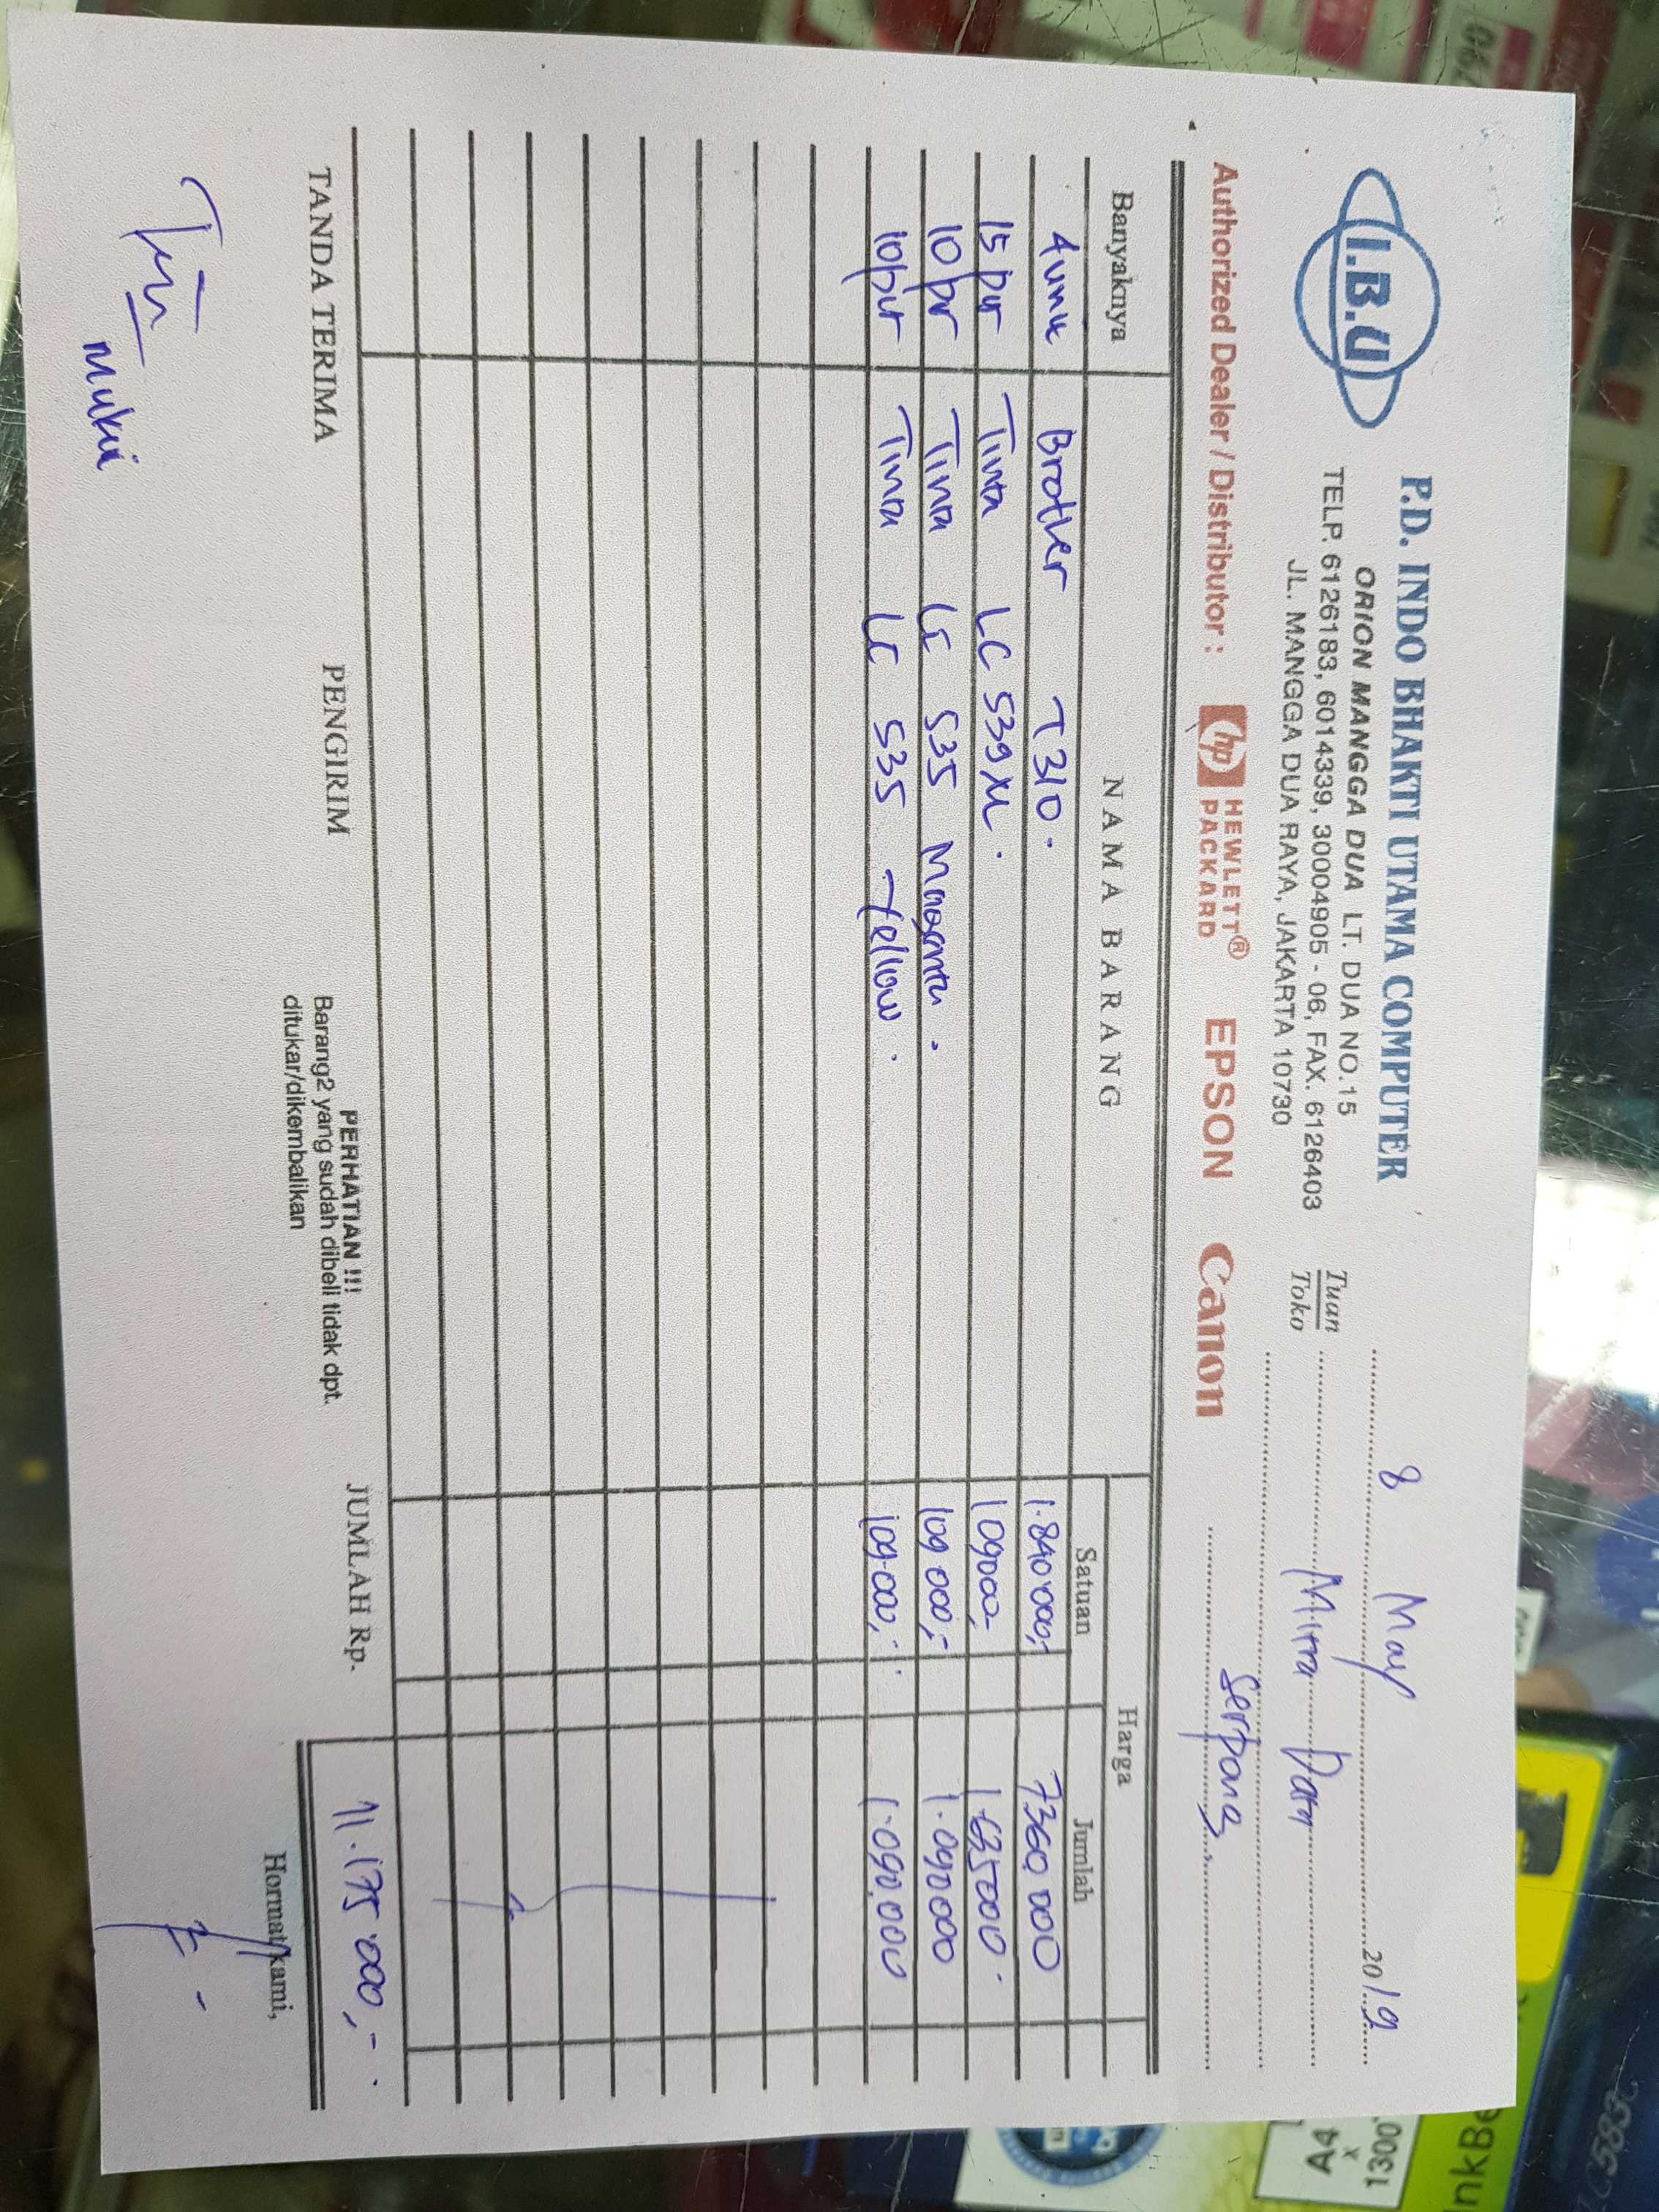 I.B.U
P.D. INDO BHAKTI UTAMA COMPUTER
ORION MANGGA DUA LT. DUA NO.15
TELP. 6126183, 6014339, 30004905 - 06, FAX. 6126403
JL. MANGGA DUA RAYA, JAKARTA 10730
8 May 2019
Tuan
Toko
Mitra Data
Serpong
Authorized Dealer / Distributor : hp HEWLETT® PACKARD EPSON Canon
Banyaknya NAMA BARANG Harga
Satuan Jumlah
4 unit Brother T310. 1.840.000,- 7360.000
15 pcs Tinta LC 539 XL. 109000,- 1.635000.
10 pcs Tinta LC 535 Magenta. 109 000,- 1.090 000
10 pcs Tinta LC 535 Yellow. 109.000,- 1.090.000
JUMLAH Rp. 11.175 000,-
TANDA TERIMA PENGIRIM
PERHATIAN !!!
Barang2 yang sudah dibeli tidak dpt.
ditukar/dikembalikan
Hormat kami,
A4
x
1300